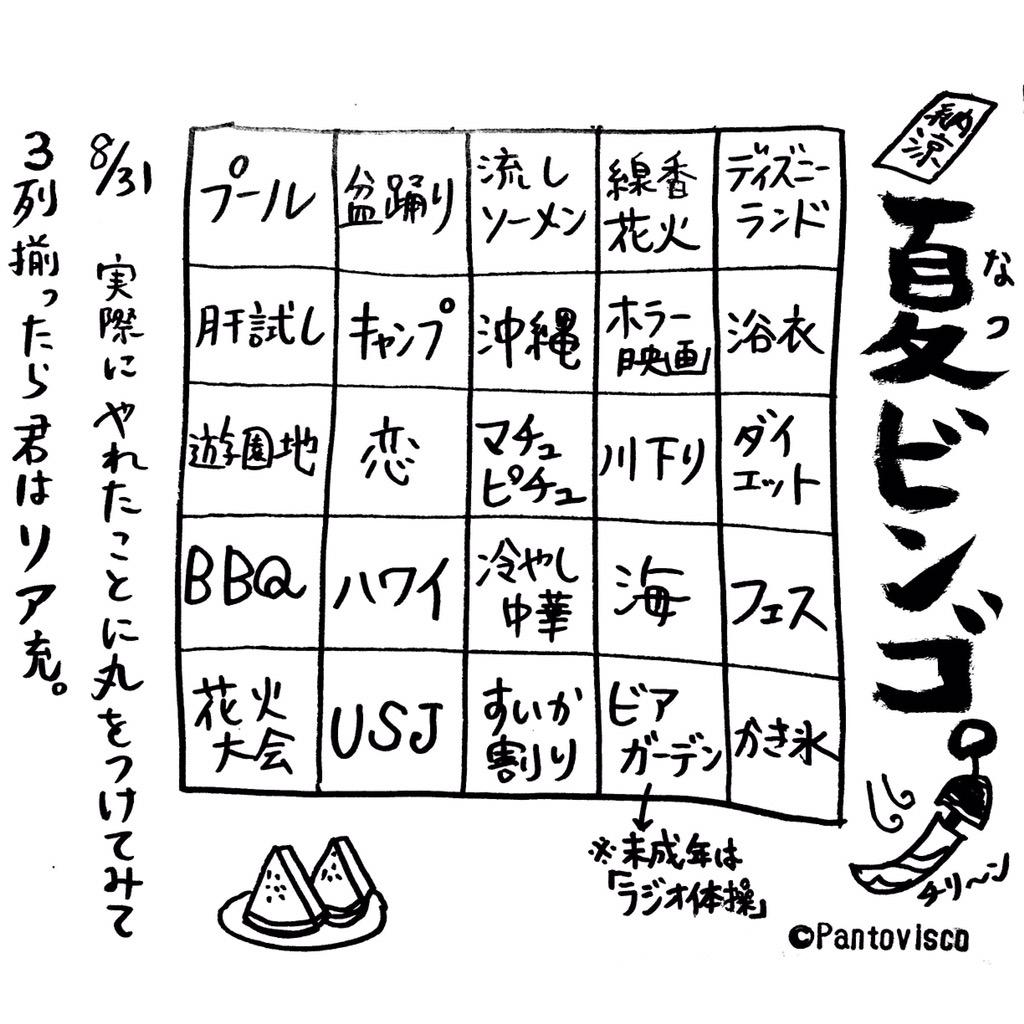 納涼
夏ビンゴ。
なつ
プール
盆踊り
流し
ソーメン
線香
花火
ディズニー
ランド
肝試し
キャンプ
沖縄
ホラー
映画
浴衣
遊園地
恋
マチュ
ピチュ
川下り
ダイ
エット
BBQ
ハワイ
冷やし
中華
海
フェス
花火
大会
USJ
すいか
割り
ビア
ガーデン
かき氷
※未成年は
「ラジオ体操」
チリ〜ン
8/31 実際にやれたことに丸をつけてみて
3列揃ったら君はリア充。
©Pantovisco